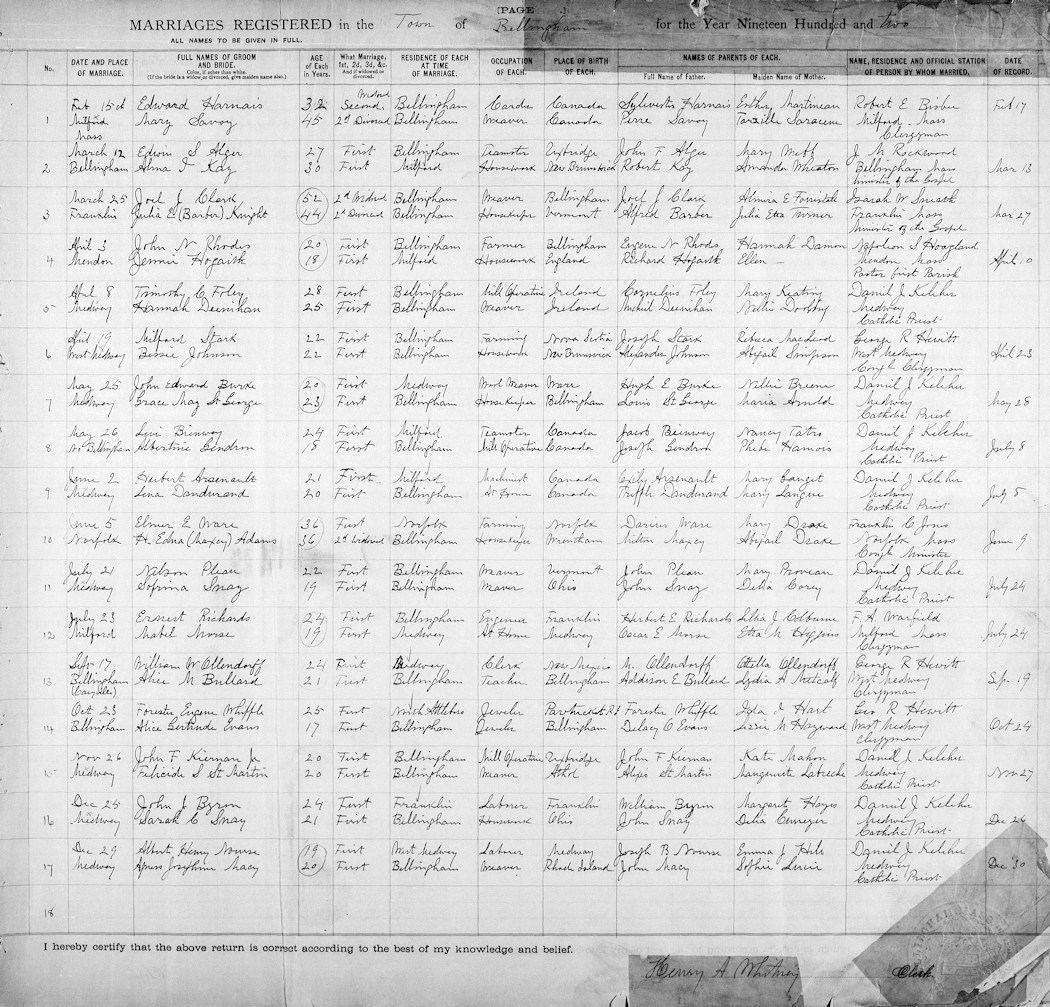 PAGE
MARRIAGES REGISTERED in the Town of Bellingham for the Year Nineteen Hundred and two
ALL NAMES TO BE GIVEN IN FULL.
No. DATE AND PLACE OF MARRIAGE. FULL NAMES OF GROOM AND BRIDE. Color, if other than white. (If the bride is a widow or divorced, give maiden name also.) AGE of Each in Years. What Marriage, 1st, 2d, 3d, &c. And if widowed or divorced. RESIDENCE OF EACH AT TIME OF MARRIAGE. OCCUPATION OF EACH. PLACE OF BIRTH OF EACH. NAMES OF PARENTS OF EACH. Full Name of Father. Maiden Name of Mother. NAME, RESIDENCE AND OFFICIAL STATION OF PERSON BY WHOM MARRIED. DATE OF RECORD.
Feb 15th Edward Harnais 32 Second, Widrd Bellingham Canada Sylvester Harnais Esther Martineau Robert E Bisbee Feb 17
1 Milford Mary Savoy 45 2d Divorced Bellingham Weaver Canada Pierre Savoy Saracene Milford, Mass
Mass Clergyman
March 12 Edwin S Alger 27 First Bellingham Teamster Uxbridge John F Alger Mary J. M Rockwood
2 Bellingham Alma I Kay 30 First Milford Housework New Brunswick Robert Kay Amanda Wheaton Bellingham Mass Mar 13
Minister of the Gospel
March 25 Joel J Clark 52 2d Widrd Bellingham Weaver Bellingham Joel J Clark Almira E Sarah W
3 Franklin Julia E (Barber) Knight 44 2d Divorced Bellingham Housekeeper Vermont Alfred Barber Julia Etta Turner Franklin Mass Mar 27
Minister of the Gospel
April 3 John N Rhodes 20 First Bellingham Farmer Bellingham Eugene N Rhodes Hannah Damon Napoleon S Hoagland
4 Mendon Jennie Hogarth 18 First Milford Housework England Richard Hogarth Ellen — Mendon Mass April 10
Pastor first Parish
April 8 Timothy C Foley 28 First Bellingham Mill Operative Ireland Cornelius Foley Mary Keating Daniel J Kelcher
5 Medway Hannah Deenihan 25 First Bellingham Weaver Ireland Michil Deenihan Nellie Medway
Catholic Priest
April 19 Milford Stark 22 First Bellingham Farming Nova Scotia Joseph Stark Rebecca MacLeod George R Hewitt
6 West Medway Bessie Johnson 22 First Bellingham Housework New Brunswick Alexander Johnson Abigail Simpson West Medway April 23
Cong'l Clergyman
May 25 John Edward Burke 20 First Medway Wool Weaver Ware Hugh E Burke Nellie Breene Daniel J Kelcher
7 Medway Grace May St George 23 First Bellingham Housekeeper Bellingham Louis St George Maria Arnold Medway May 28
Catholic Priest
May 26 Levi Bienvoy 24 First Milford Teamster Canada Jacob Bienvoy Nancy Tatro Daniel J Kelcher
8 No Bellingham Albertine Gendron 18 First Bellingham Mill Operative Canada Joseph Gendron Phebe Harnois Medway July 8
Catholic Priest
June 2 Herbert Arsenault 21 First Milford Machinist Canada Arsenault Mary Daniel J Kelcher
9 Medway Lena Dandurand 20 First Bellingham At Home Canada Dandurand Mary Langue Medway July 5
Catholic Priest
June 5 Elmer E Ware 36 First Norfolk Farming Norfolk Darius Ware Mary Drake Franklin C Jones
10 Norfolk H. Edna (Maxcy) Adams 36 2d Widrd Bellingham Housekeeper Wrentham Milton Maxcy Abigail Drake Norfolk Mass June 9
Cong'l Minister
July 21 Nelson Pleau 22 First Bellingham Weaver Vermont John Pleau Mary Proveau Daniel J Kelcher
11 Medway Sofrina Snay 19 First Bellingham Weaver Ohio John Snay Delia Corey Medway July 24
Catholic Priest
July 23 Ernest Richards 24 First Bellingham Engineer Franklin Herbert E Richards Lilla J Colburne F. A. Warfield
12 Milford Mabel Morse 19 First Medway At Home Medway Oscar E Morse Etta M Higgins Milford Mass July 24
Clergyman
Sept 17 William W Ollendorff 24 First Medway Clerk New Mexico M. Ollendorff Ottilla Ollendorff George R Hewitt
13 Bellingham Alice M Bullard 21 First Bellingham Teacher Bellingham Addison E Bullard Lydia A Metcalf West Medway Sep 19
(Caryville) Clergyman
Oct 23 Forester Eugene Whipple 25 First North Attleboro Jeweler Pawtucket R I Forester Whipple Hart Geo R Hewitt
14 Bellingham Alice Gertrude Evans 17 First Bellingham Jeweler Bellingham Delacy C Evans Lizzie M Hayward West Medway Oct 24
Clergyman
Nov 26 John F Kiernan Jr 20 First Bellingham Mill Operative Uxbridge John F Kiernan Kate Mahon Daniel J Kelcher
15 Medway Felicide S St Martin 20 First Bellingham Weaver Athol Alexis St Martin Marguerite Labreche Medway Nov 27
Catholic Priest
Dec 25 John J Byron 24 First Franklin Laborer Franklin William Byron Margaret Hayes Daniel J Kelcher
16 Medway Sarah C Snay 21 First Bellingham Housework Ohio John Snay Delia Medway Dec 26
Catholic Priest
Dec 29 Albert Henry Nourse 19 First West Medway Laborer Medway Joseph B Nourse Emma J Hill Daniel J Kelcher
17 Medway Agnes Josephine Macy 20 First Bellingham Weaver Rhode Island John Macy Sophie Medway Dec 30
Catholic Priest
18
I hereby certify that the above return is correct according to the best of my knowledge and belief.
Henry A Whitney Clerk